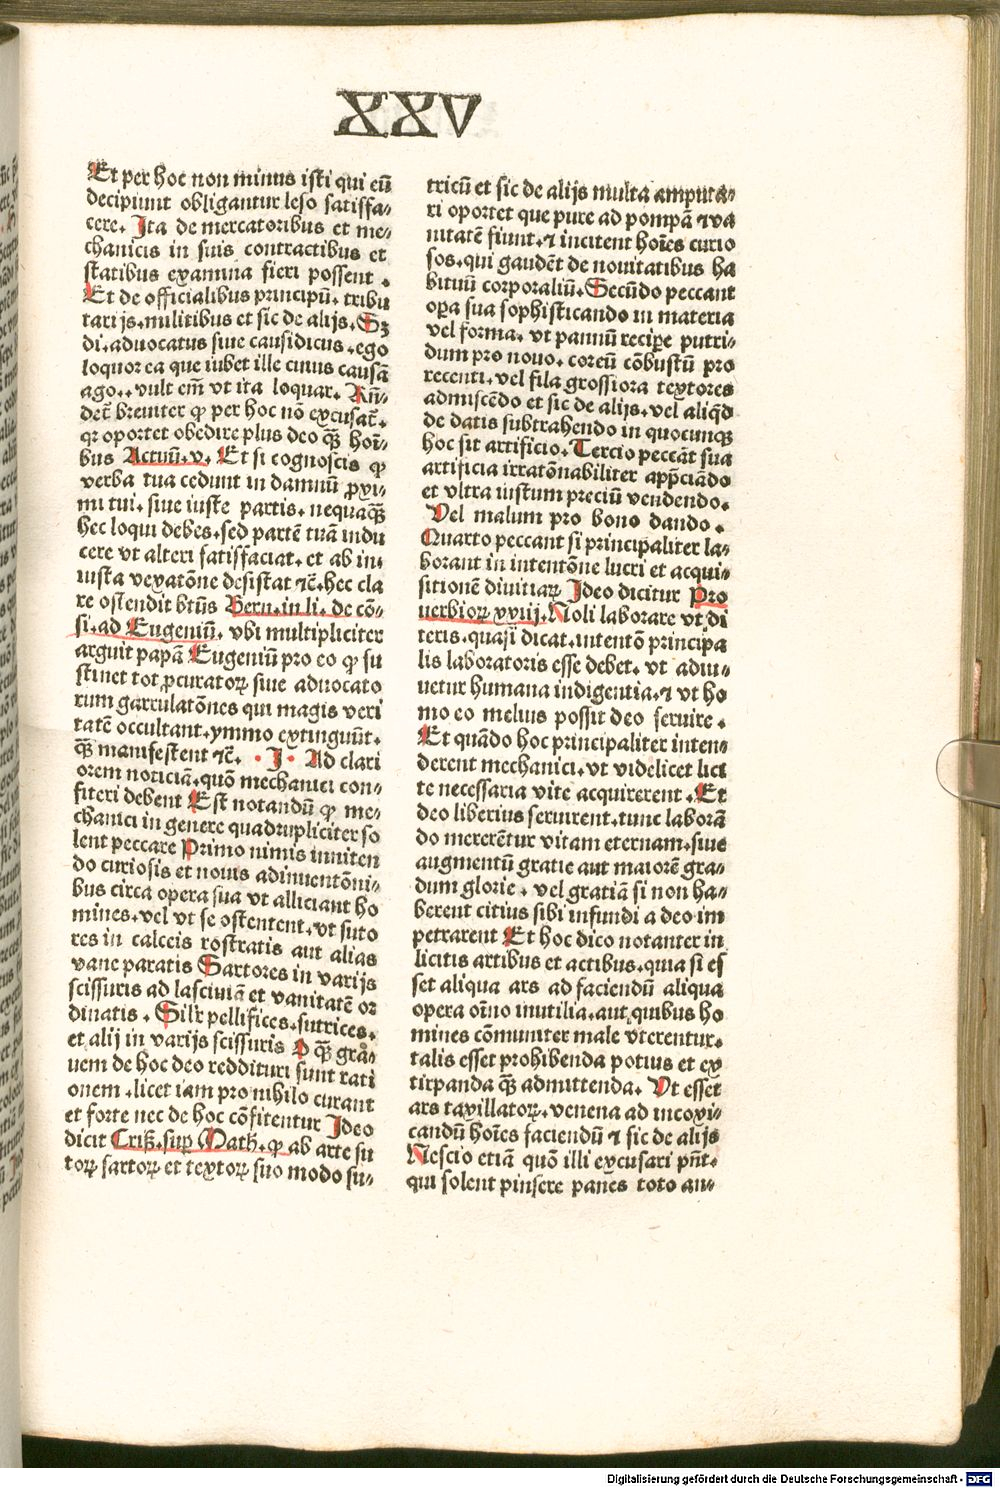 XXV
Et per hoc non minus isti qui eū
decipiunt obligantur leso satisfa⸗
cere. Ita de mercatoribus et me⸗
chanicis in suis contractibus et
statibus examina fieri possent.
Et de officialibus principū. tribu
tarijs. militibus et sic de alijs. Sꝫ
di. aduocatus siue causidicus. ego
loquor ea que iubet ille cuius causā
ago. vult em̄ vt ita loquar. Rn̄⸗
det̄ breuiter ꝙ per hoc nō excusat̄.
qꝛ oportet obedire plus deo qȝ̄ hoī⸗
bus Actuū. v. Et si cognoscis ꝙ
verba tua cedunt in damnū ꝓxi⸗
mi tui. siue iuste partis. nequaqȝ̄
hec loqui debes. sed partē tuā indu
cere vt alteri satisfaciat. et ab in⸗
iusta vexatōne desistat ⁊c̄. hec cla
re ostendit btūs Bern. in li. de cō⸗
si. ad Eugeniū. vbi multipliciter
arguit papā Eugeniū pro eo ꝙ su
stinet tot ꝓcuratoꝝ siue aduocato
rum garrulatōnes qui magis veri
tatē occultant. ymmo extingunt̄.
qȝ̄ manifestent ⁊c̄. · I · Ad clari
orem noticiā. quō mechanici con⸗
fiteri debent Est notandū ꝙ me⸗
chanici in genere quadrupliciter so
lent peccare Primo nimis inniten
do curiosis et nouis adinuentōni⸗
bus circa opera sua vt alliciant ho
mines. vel vt se ostentent. vt suto
res in calceis rostratis aut alias
vane paratis Sartores in varijs
scissuris ad lasciuiā et vanitatē or
dinatis. Silr̄ pellifices. sutrices.
et alij in varijs scissuris O qȝ̄ grā⸗
uem de hoc deo reddituri sunt rati
onem. licet iam pro nihilo curant
et forte nec de hoc cōfitentur Ideo
dicit Criß. sup̄ Math. ꝙ ab arte su
toꝝ sartoꝝ et textoꝝ suo modo su⸗
tricū et sic de alijs multa amputa⸗
ri oportet que pure ad pompā ⁊ va
nitatē fiunt. ⁊ incitent hoīes curio
sos. qui gaudēt de nouitatibus ha
bituū corporaliū. Secūdo peccant
oꝑa sua sophisticando in materia
vel forma. vt pannū reciꝑe putri⸗
dum pro nouo. coreū cōbustū pro
recenti. vel fila grossiora textores
admiscēdo et sic de alijs. vel aliqd̄
de datis subtrahendo in quocunqȝ
hoc sit artificio. Tercio peccāt sua
artificia irratōnabiliter app̄ciādo
et vltra iustum preciū vendendo.
Vel malum pro bono dando.
Quarto peccant si principaliter la⸗
borant in intentōne lucri et acqui⸗
sitionē diuitiaꝝ Ideo dicitur Pro
uerbioꝝ xxiij. Noli laborare vt di
teris. quasi dicat. intentō principa
lis laboratoris esse debet. vt adiu⸗
uetur humana indigentia. ⁊ vt ho
mo eo melius possit deo seruire.
Et quādo hoc principaliter inten⸗
derent mechanici. vt videlicet lici
te necessaria vite acquirerent. Et
deo liberius seruirent. tunc laborā
do mererētur vitam eternam. siue
augmentū gratie aut maiorē gra⸗
dum glorie. vel gratiā si non ha⸗
berent citius sibi infundi a deo im
petrarent Et hoc dico notanter in
licitis artibus et actibus. quia si es
set aliqua ars ad faciendū aliqua
opera oīno inutilia. aut quibus ho
mines cōmuniter male vterentur.
talis esset prohibenda potius et ex
tirpanda qȝ̄ admittenda. Vt esset
ars taxillatoꝝ. venena ad incoxi⸗
candū hoīes faciendū ⁊ sic de alijs
Nescio etiā quō illi excusari pn̄t.
qui solent pinsere panes toto an⸗
Digitalisierung gefördert durch die Deutsche Forschungsgemeinschaft - DFG